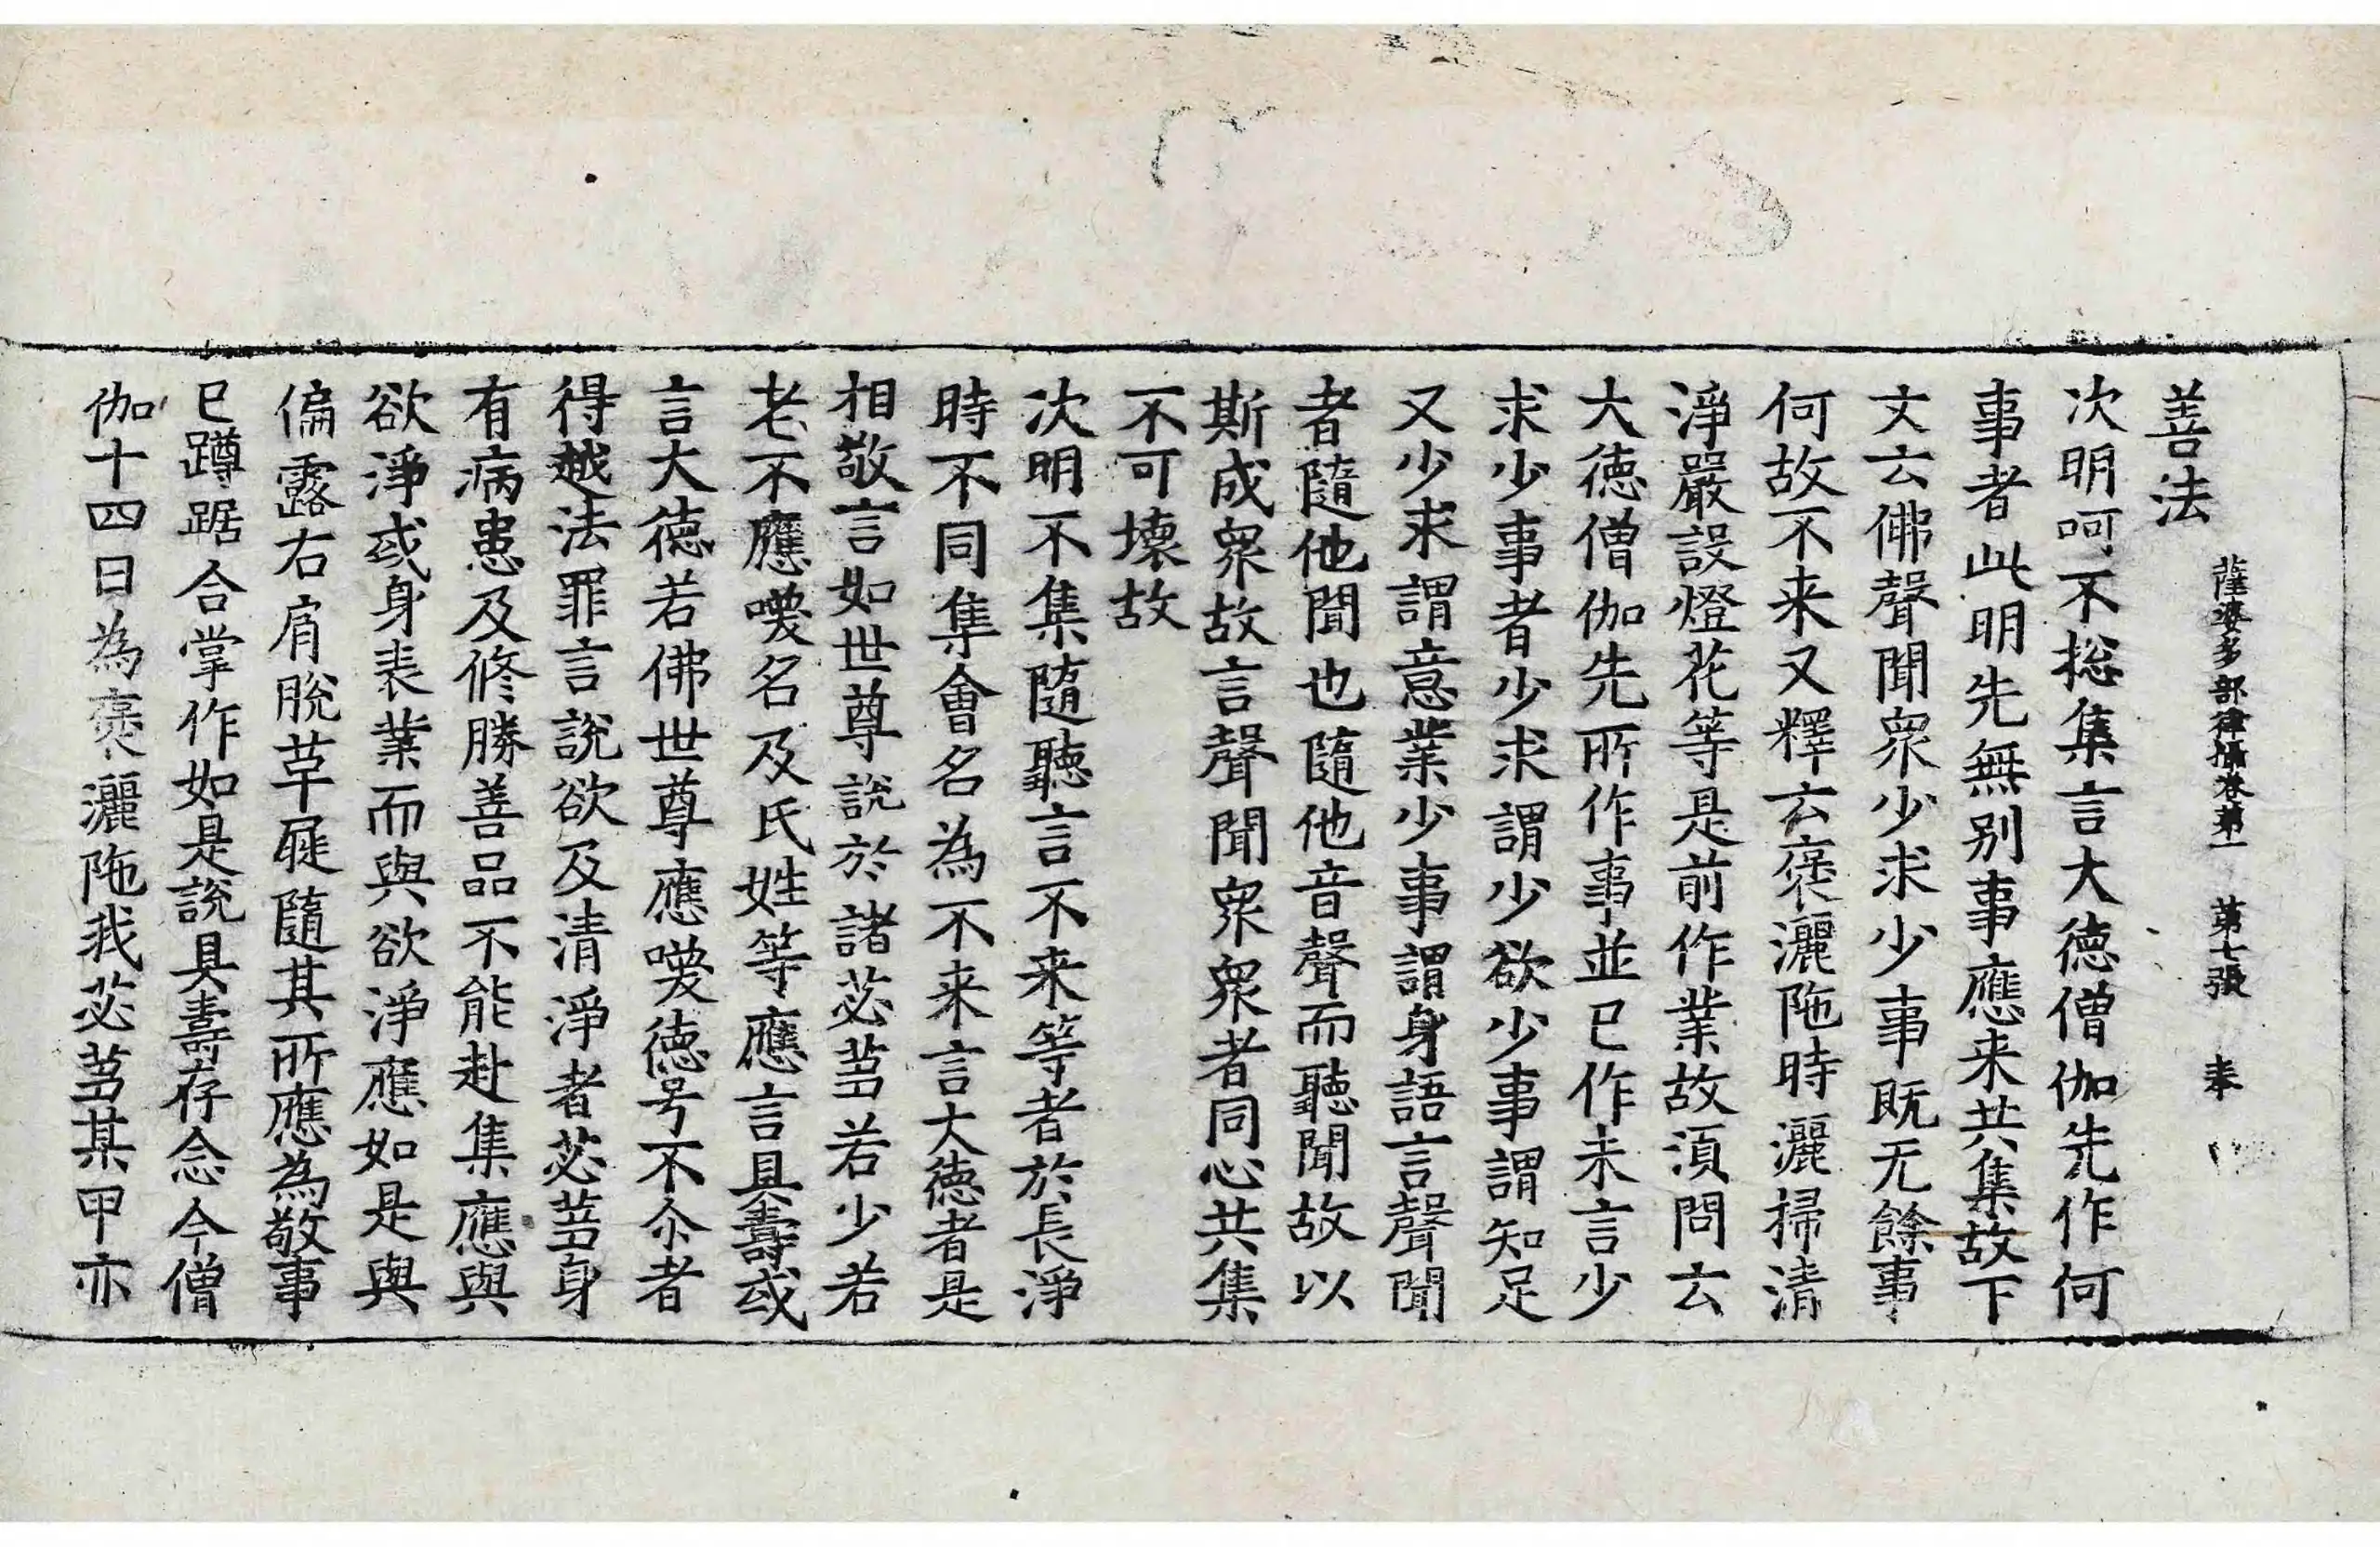 薩婆多部律攝卷第一 第七張 奉
善法
次明呵不揔集言大德僧伽先作何
事者此明先無别事應来共集故下
文云佛聲聞衆少求少事既无餘事
何故不来又釋云褒灑陁時灑掃清
淨嚴設燈花等是前作業故湏問云
大德僧伽先所作事並已作未言少
求少事者少求謂少欲少事謂知足
又少求謂意業少事謂身語言聲聞
者隨他聞也隨他音聲而聽聞故以
斯成衆故言聲聞衆衆者同心共集
不可壞故
次明不集隨聽言不来等者於長淨
時不同集會名為不来言大德者是
相敬言如世尊說於諸苾蒭若少若
老不應喚名及氏姓等應言具壽或
言大德若佛世尊應喚德号不尒者
得越法罪言說欲及清淨者苾蒭身
有病患及修勝善品不能赴集應與
欲淨或身表業而與欲淨應如是與
偏露右肩脫草屣隨其所應為敬事
已蹲踞合掌作如是說具壽存念今僧
伽十四日為褒灑陁我苾蒭某甲亦